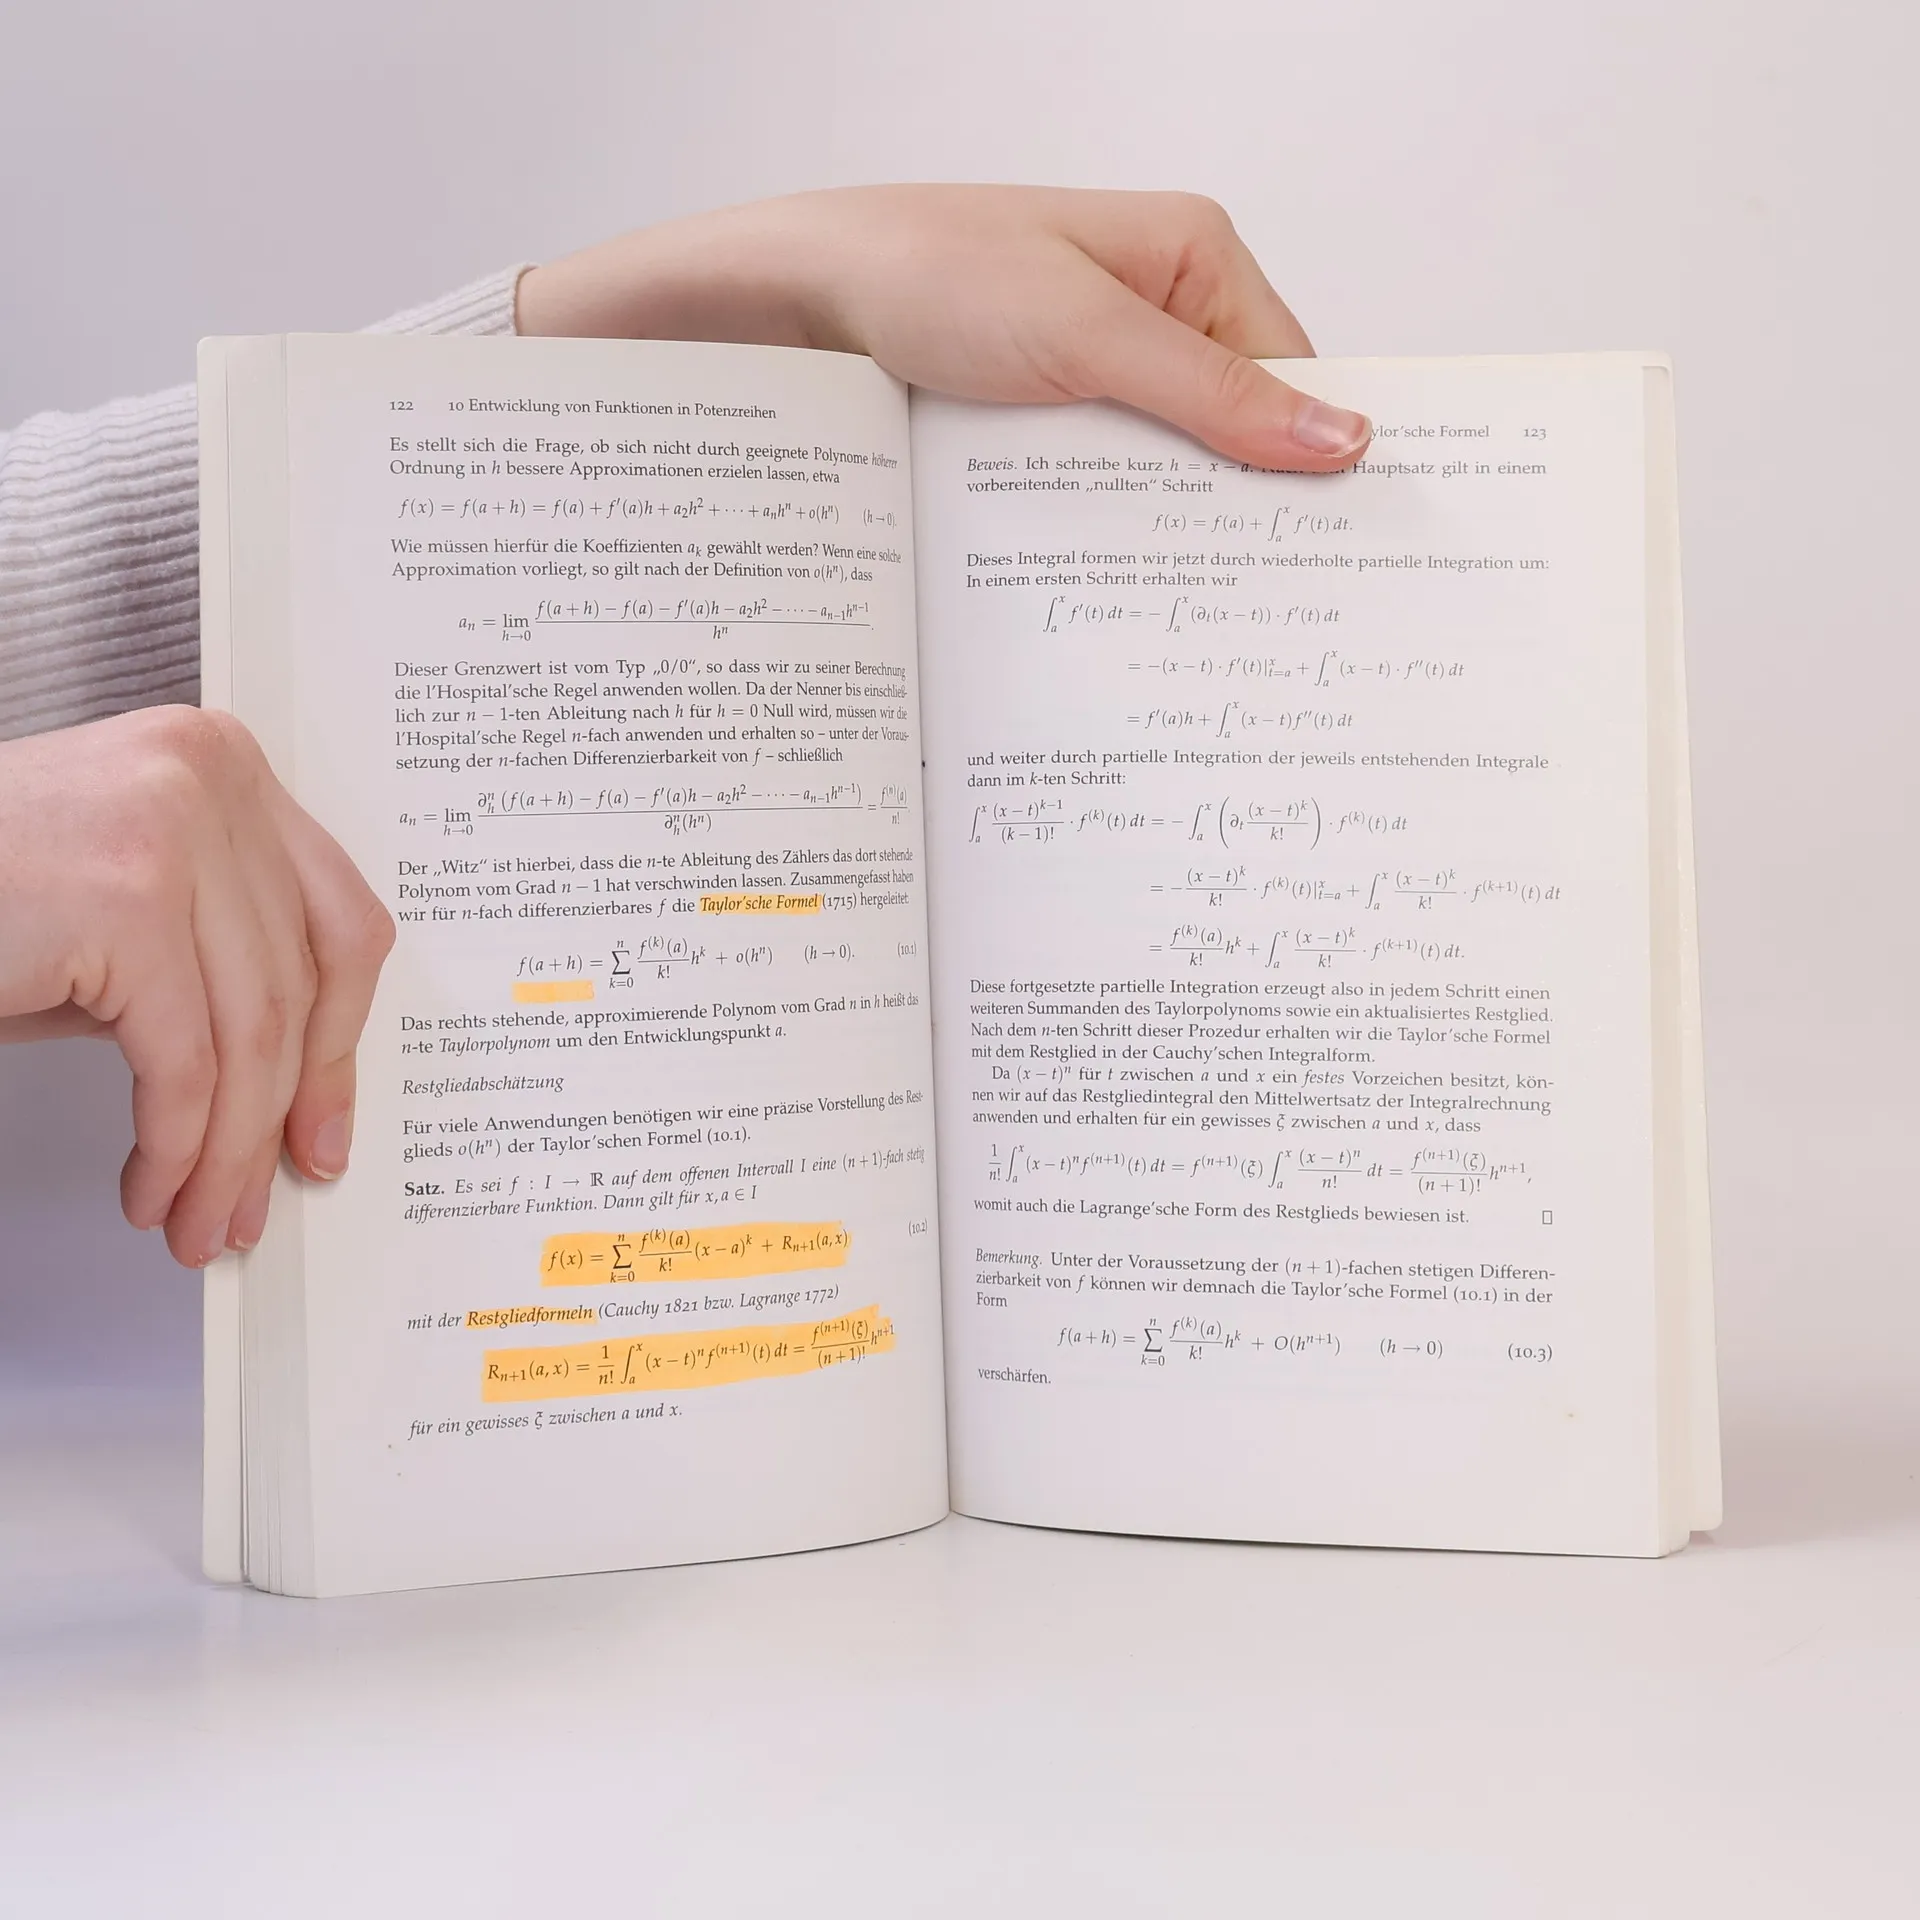 122 10 Entwicklung von Funktionen in Potenzreihen
Es stellt sich die Frage, ob sich nicht durch geeignete Polynome höherer
Ordnung in h bessere Approximationen erzielen lassen, etwa
f(x) = f(a + h) = f(a) + f′(a)h + a₂h² + ··· + aₙhⁿ + o(hⁿ) (h → 0).
Wie müssen hierfür die Koeffizienten aₖ gewählt werden? Wenn eine solche
Approximation vorliegt, so gilt nach der Definition von o(hⁿ), dass
aₙ = lim_{h→0} (f(a + h) − f(a) − f′(a)h − a₂h² − ··· − aₙ₋₁hⁿ⁻¹) / hⁿ.
Dieser Grenzwert ist vom Typ „0/0“, so dass wir zu seiner Berechnung
die l’Hospital’sche Regel anwenden wollen. Da der Nenner bis einschließ-
lich zur n − 1-ten Ableitung nach h für h = 0 Null wird, müssen wir die
l’Hospital’sche Regel n-fach anwenden und erhalten so – unter der Voraus-
setzung der n-fachen Differenzierbarkeit von f – schließlich
aₙ = lim_{h→0} ∂ₕⁿ (f(a + h) − f(a) − f′(a)h − a₂h² − ··· − aₙ₋₁hⁿ⁻¹) / ∂ₕⁿ(hⁿ) = f⁽ⁿ⁾(a) / n!
Der „Witz“ ist hierbei, dass die n-te Ableitung des Zählers das dort stehende
Polynom vom Grad n − 1 hat verschwinden lassen. Zusammengefasst haben
wir für n-fach differenzierbares f die Taylor’sche Formel (1715) hergeleitet
f(a + h) = ∑_{k=0}^{n} f⁽ᵏ⁾(a)/k! hᵏ + o(hⁿ) (h → 0). (10.1)
Das rechts stehende, approximierende Polynom vom Grad n in h heißt das
n-te Taylorpolynom um den Entwicklungspunkt a.
Restgliedabschätzung
Für viele Anwendungen benötigen wir eine präzise Vorstellung des Rest-
glieds o(hⁿ) der Taylor’schen Formel (10.1).
Satz. Es sei f : I → ℝ auf dem offenen Intervall I eine (n + 1)-fach stetig
differenzierbare Funktion. Dann gilt für x, a ∈ I
f(x) = ∑_{k=0}^{n} f⁽ᵏ⁾(a)/k! (x − a)ᵏ + Rₙ₊₁(a, x) (10.2)
mit der Restgliedformeln (Cauchy 1821 bzw. Lagrange 1772)
Rₙ₊₁(a, x) = 1/n! ∫ₐˣ (x − t)ⁿ f⁽ⁿ⁺¹⁾(t) dt = f⁽ⁿ⁺¹⁾(ξ)/(n + 1)! hⁿ⁺¹
für ein gewisses ξ zwischen a und x.
ylor’sche Formel 123
Beweis. Ich schreibe kurz h = x − a. Hauptsatz gilt in einem
vorbereitenden „nullten“ Schritt
f(x) = f(a) + ∫ₐˣ f′(t) dt.
Dieses Integral formen wir jetzt durch wiederholte partielle Integration um:
In einem ersten Schritt erhalten wir
∫ₐˣ f′(t) dt = − ∫ₐˣ (∂ₜ(x − t)) · f′(t) dt
= −(x − t) · f′(t)|ˣₜ₌ₐ + ∫ₐˣ (x − t) · f″(t) dt
= f′(a)h + ∫ₐˣ (x − t) f″(t) dt
und weiter durch partielle Integration der jeweils entstehenden Integrale
dann im k-ten Schritt:
∫ₐˣ (x − t)ᵏ⁻¹/(k − 1)! · f⁽ᵏ⁾(t) dt = − ∫ₐˣ (∂ₜ (x − t)ᵏ/k!) · f⁽ᵏ⁾(t) dt
= − (x − t)ᵏ/k! · f⁽ᵏ⁾(t)|ˣₜ₌ₐ + ∫ₐˣ (x − t)ᵏ/k! · f⁽ᵏ⁺¹⁾(t) dt
= f⁽ᵏ⁾(a)/k! hᵏ + ∫ₐˣ (x − t)ᵏ/k! · f⁽ᵏ⁺¹⁾(t) dt.
Diese fortgesetzte partielle Integration erzeugt also in jedem Schritt einen
weiteren Summanden des Taylorpolynoms sowie ein aktualisiertes Restglied.
Nach dem n-ten Schritt dieser Prozedur erhalten wir die Taylor’sche Formel
mit dem Restglied in der Cauchy’schen Integralform.
Da (x − t)ⁿ für t zwischen a und x ein festes Vorzeichen besitzt, kön-
nen wir auf das Restgliedintegral den Mittelwertsatz der Integralrechnung
anwenden und erhalten für ein gewisses ξ zwischen a und x, dass
1/n! ∫ₐˣ (x − t)ⁿ f⁽ⁿ⁺¹⁾(t) dt = f⁽ⁿ⁺¹⁾(ξ) ∫ₐˣ (x − t)ⁿ/n! dt = f⁽ⁿ⁺¹⁾(ξ)/(n + 1)! hⁿ⁺¹,
womit auch die Lagrange’sche Form des Restglieds bewiesen ist. □
Bemerkung. Unter der Voraussetzung der (n + 1)-fachen stetigen Differen-
zierbarkeit von f können wir demnach die Taylor’sche Formel (10.1) in der
Form
f(a + h) = ∑_{k=0}^{n} f⁽ᵏ⁾(a)/k! hᵏ + O(hⁿ⁺¹) (h → 0) (10.3)
verschärfen.